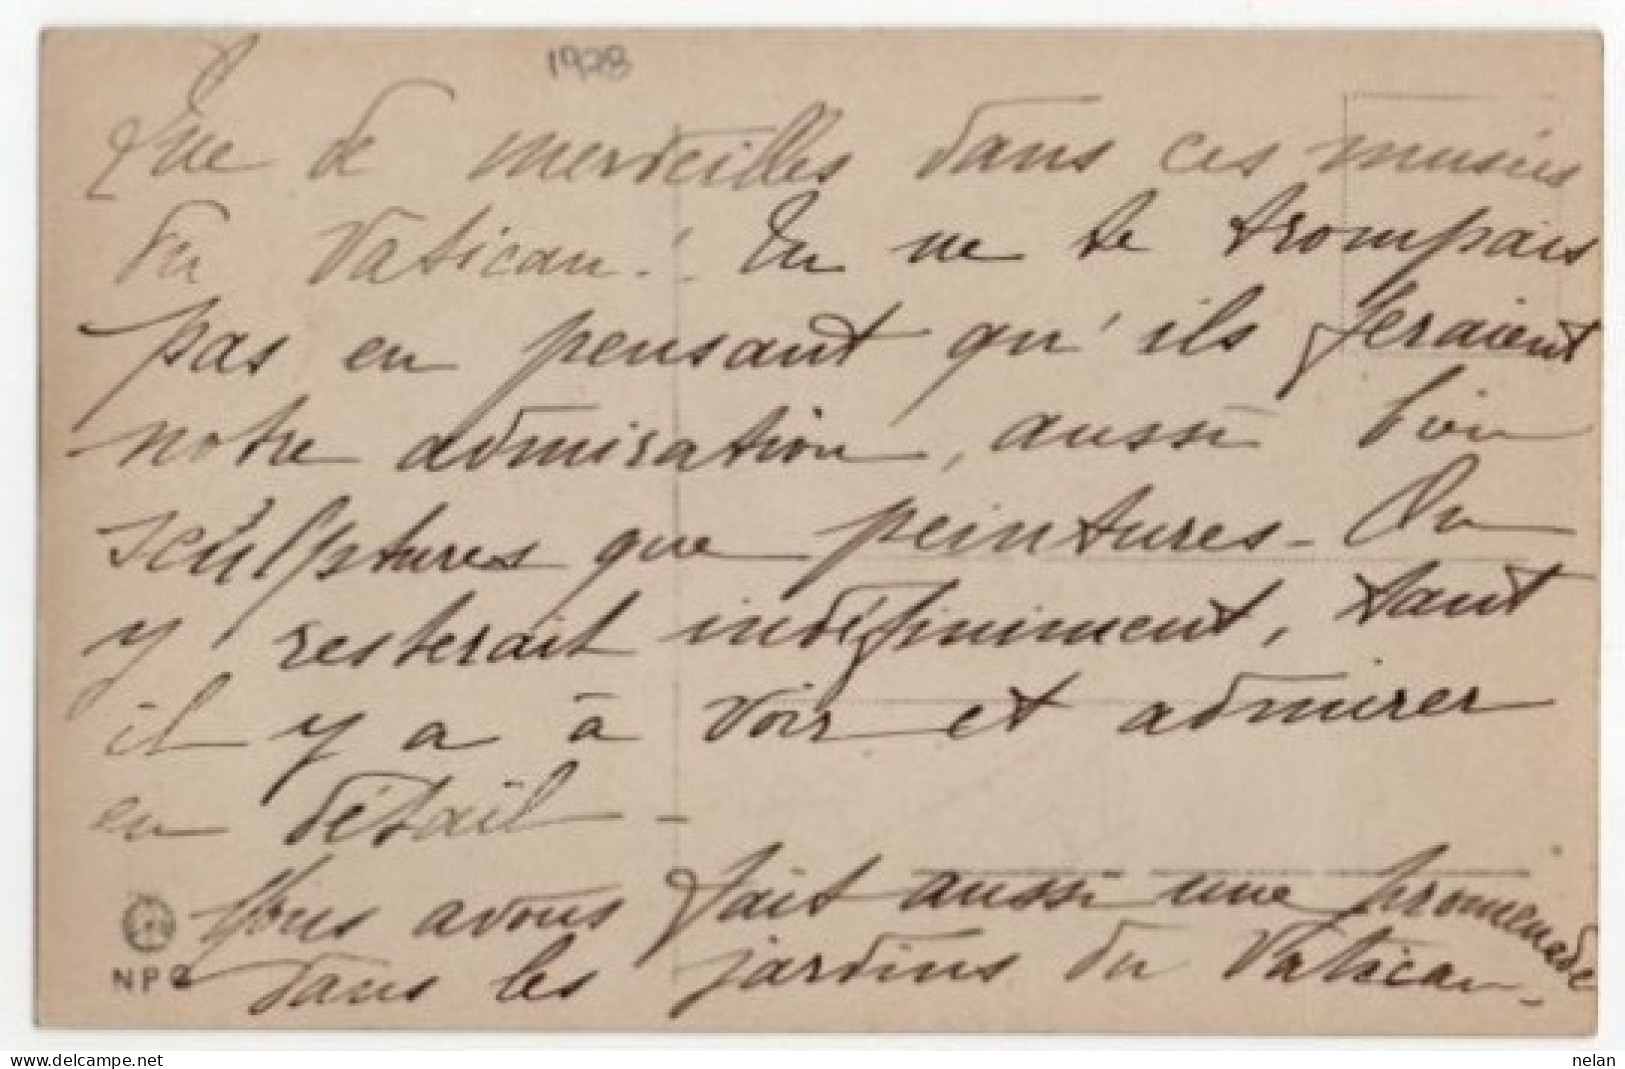 1928
Que de merveilles dans ces musées
du Vatican ! Tu ne te trompais
pas en pensant qu'ils feraient
notre admiration, aussi bien
sculptures que peintures - On
y resterait indéfiniment, tant
il y a à voir et admirer
en détail -
Nous avons fait aussi une promenade
dans les jardins du Vatican -
NPG
www.delcampe.net
nelan